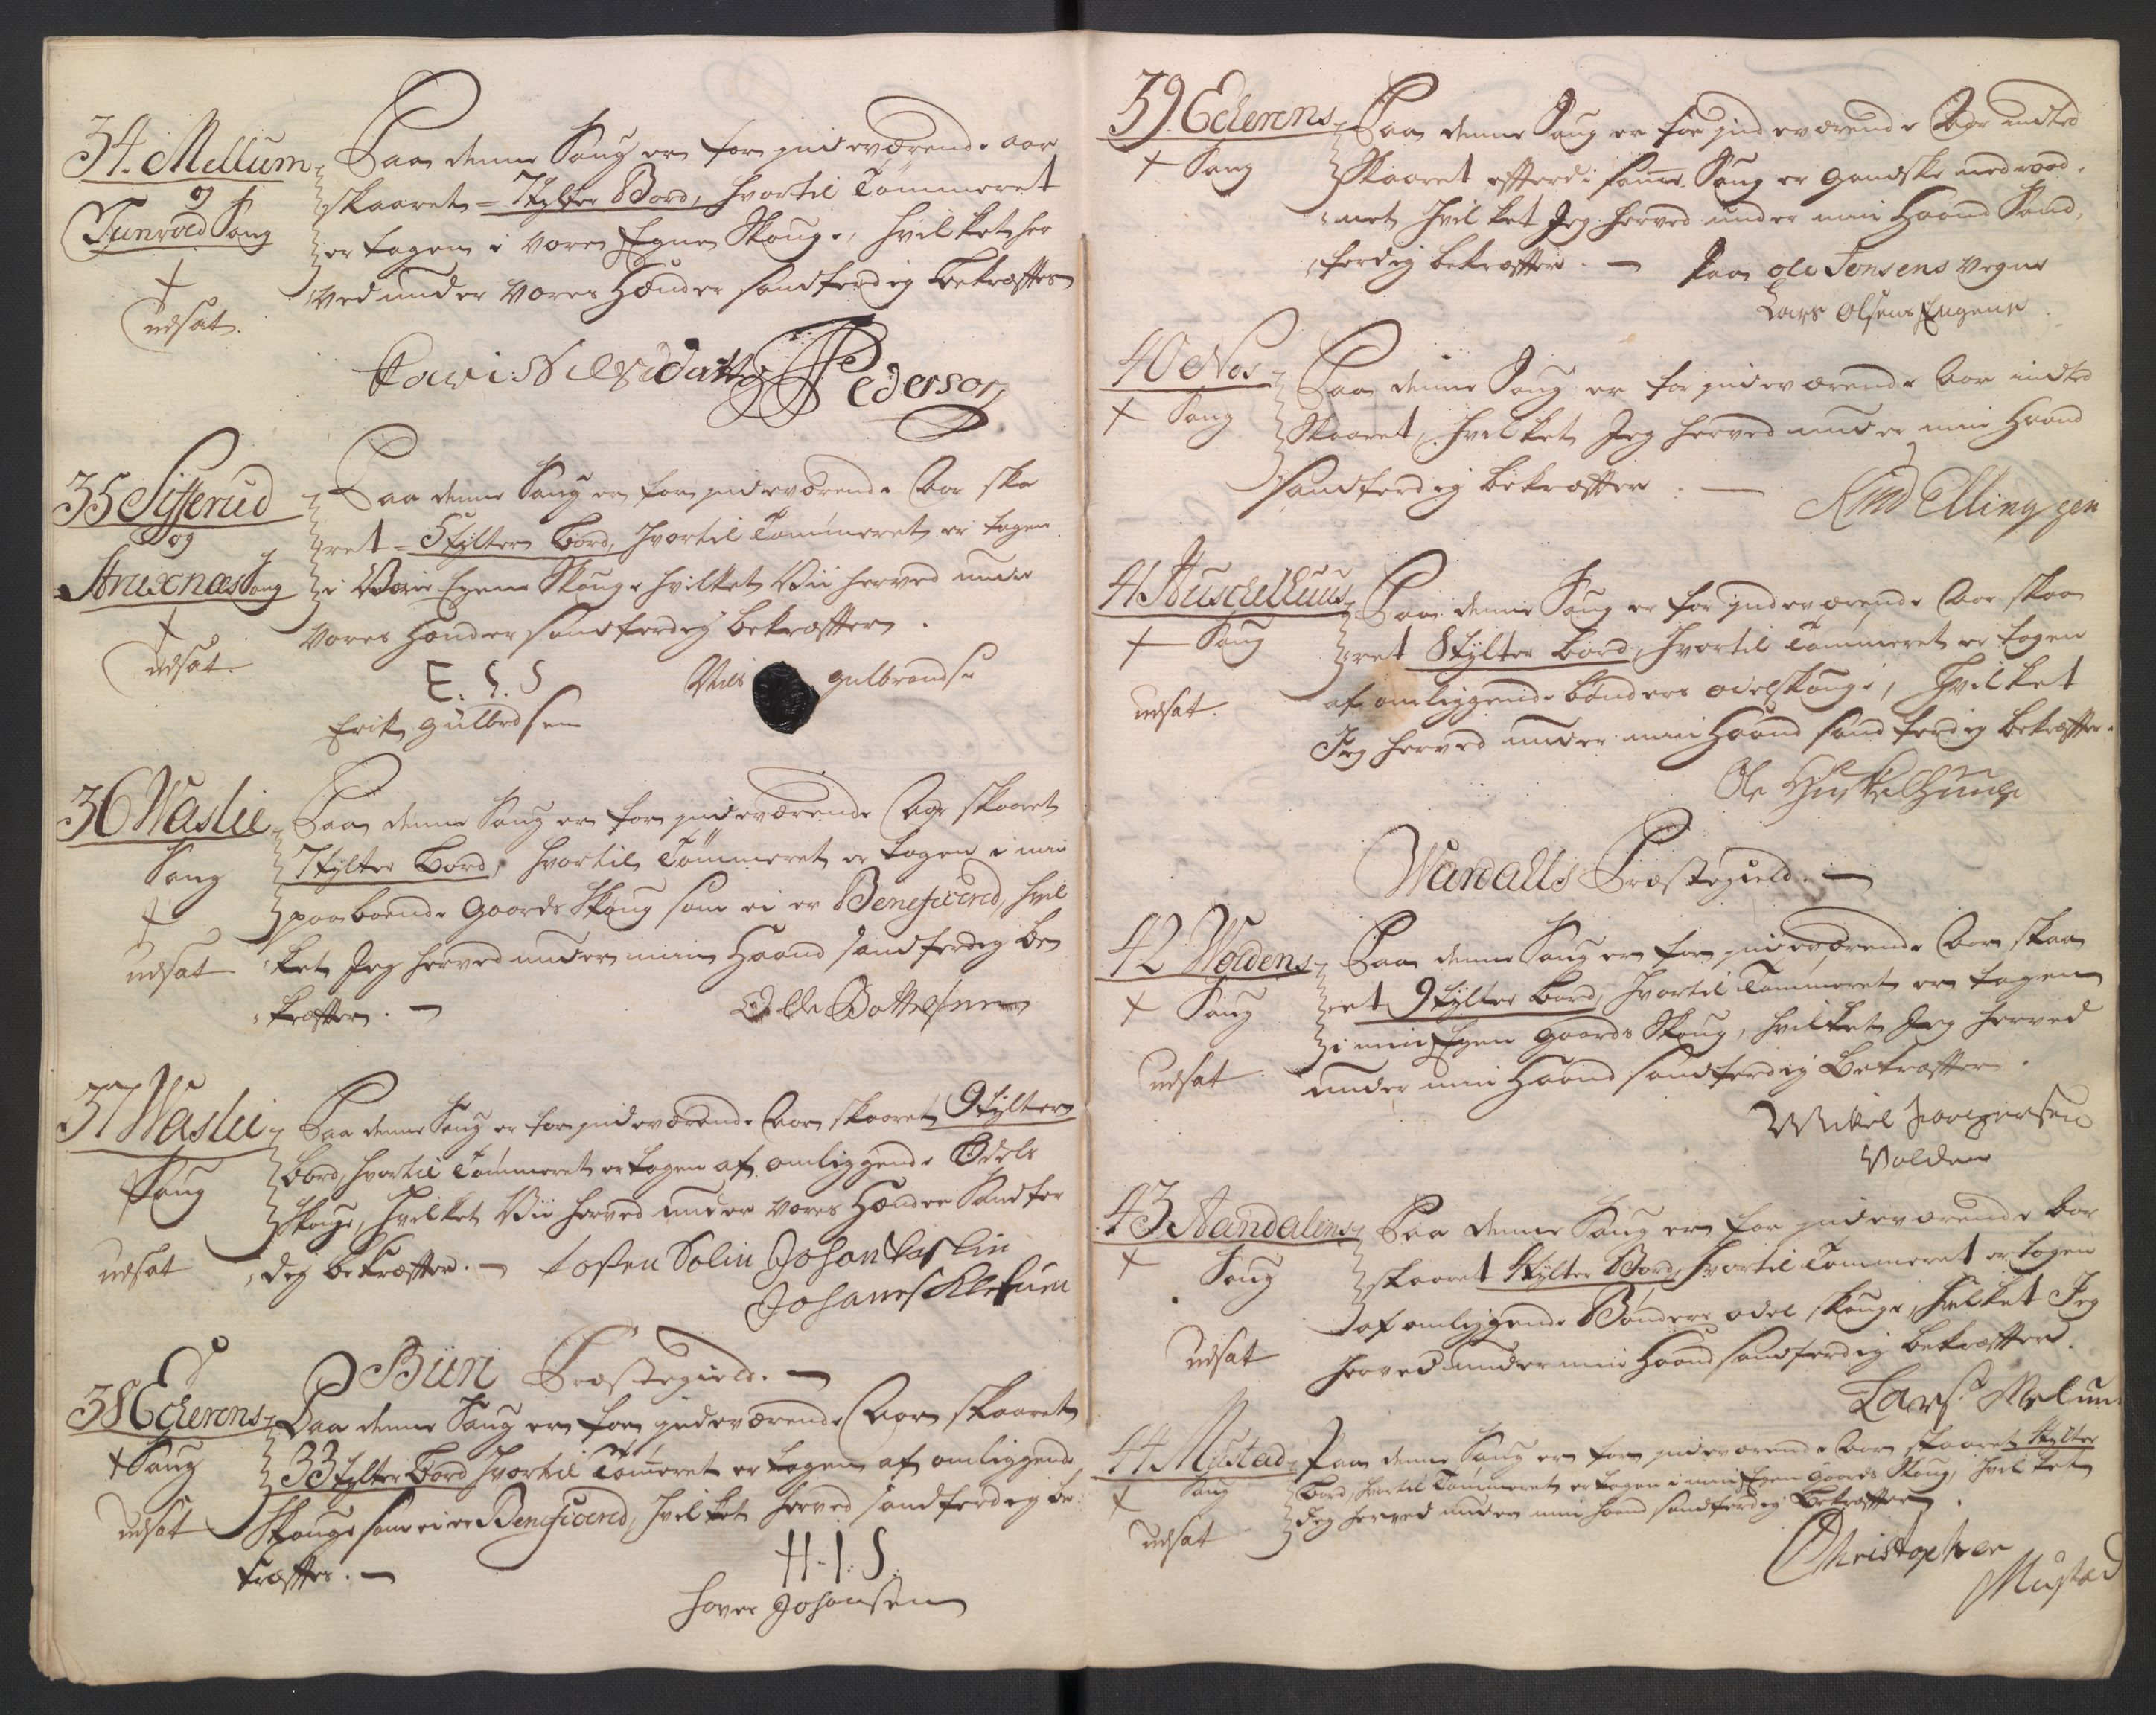 34. Mellum
og
Tunvold Saug
+
udsat.
Paa denne Saug er for indeværende aar
skaaret = 7 tylter Bord, hvortil Tømmeret
er tagen i vores Egne Skouge, hvilket her
ved under vores Hænder sandferdig bekræftes
Pederson
35 Sifferud
og
Struxnæs Saug
+
udsat.
Paa denne Saug er for indeværende Aar ska
aret = 5 tylter Bord, hvortil Tømmeret er tagen
i Vorre Egene Skouge hvilket Vii herved under
vores Hænder sandferdig bekræfter.
E. G. S
Erik gulbrdsen
Niels gulbrandse
36 Waslie
Saug
+
udsat
Paa denne Saug er for indeværende Aar skaaret
7 tylter Bord, hvortil Tømmeret er tagen i min
paaboende Gaards Skoug som ei er Beneficered, hvil
ket Jeg herved under min Haand sandferdig be
kræfter. —
37 Waslie
Saug
udsat
Paa denne Saug er for indeværende Aar skaaret 9 tylter
Bord, hvortil Tømmeret er tagen af omliggende Odels
Skouge, hvilket Vii herved under vores Hænder Sandfer
dig bekræfter. — Tosten Solin Johan Vaslin
Johannes Klefuen
Biiri Præstegield. —
38 Eckerens
+ Saug
udsat
Paa denne Saug er for indeværende Aar skaaret
33 tylter Bord hvortil Tømeret er tagen af omliggende
Skouge som ei er Beneficered, hvilket herved sandferdig be
kræfter. —
H. I. S.
Hover Johansen
39. Eckerens
+ Saug
Paa denne Saug er for indeværende Aar indted
Skaaret efterdi same Saug er gandske nedraad
net hvilket Jeg herved under min Haand Sand
ferdig bekræfter. — Paa Ole Jensens Vegne
Lars Olsens Engene
40 Nos
+ Saug
Paa denne Saug er for indeværende Aar indted
Skaaret, hvilket Jeg herved under min Haand
sandferdig bekræfter. —
Knud Ellingsen
41 Huschelhuus
+ Saug
udsat.
Paa denne Saug er for indeværende Aar skaa
ret 8 tylter Bord, hvortil Tømmeret er tagen
af omliggende bønders odelskouge, hvilket
Jeg herved under min Haand sandferdig bekræfter.
Ole Huskelhuus
Wardalls Præstegield. —
42 Woldens
+ Saug
udsat
Paa denne Saug er for indeværende Aar skaa
ret 9 tylter Bord, hvortil Tømmeret er tagen
i min Egen gaards Skoug, hvilket Jeg herved
under min Haand sandferdig bekræfter.
Mikel Jørgensen
Volden
43 Aandalens
+ Saug
udsat
Paa denne Saug er for indeværende Aar
skaaret 4 tylter Bord, hvortil Tømmeret er tagen
af omliggende Bønders odel skouge, hvilket Jeg
herved under min Haand sandferdig bekræfter.
Lars Melum
44 Mustad
+ Saug
udsat
Paa denne Saug er for indeværende Aar skaaret 4 tylter
Bord, hvortil Tømmeret er tagen i min Egen gaards Skoug, hvilket
Jeg herved under min haand sandferdig bekræfter.
Christopher
Mustad